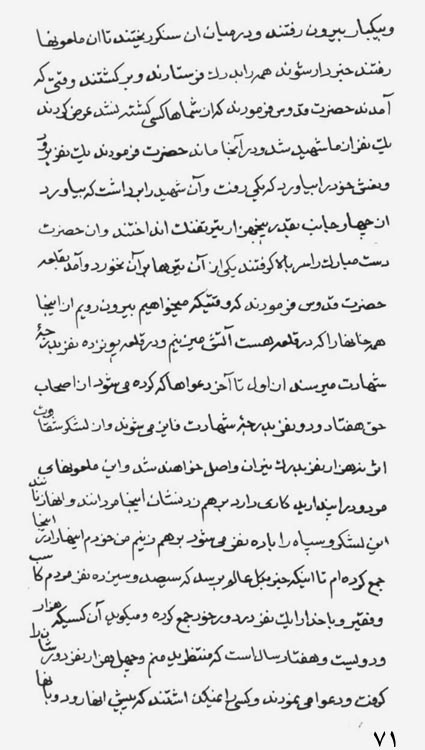 و بیکبار بیرون رفتند و در میان ان سنکر ریختند تا ان ملعونها
رفتند خبردار شوند همه را بدرك فرستادند و بر کشتند وقتی که
آمدند حضرت قدوس فرمودند که از شماها کسی کشته نشد عرض کردند
یك نفر از ما شهید شد و در آنجا ماند حضرت فرمودند یك نفر برود
و نعش خود را بیاورد که یکی رفت و آن شهید را برداشت که بیاورد
از چهار جانب بقدر پنجهزار تیر تفنك انداختند و ان حضرت
دست مبارك را سر بالا کرفتند یکی از آن تیرها بر آن نخورد و آمد بقلعه
حضرت قدوس فرمودند که وقتیکه میخواهیم بیرون رویم از اینجا
همه خانها را که در قلعه هست آتش میزنیم و در قلعه نوزده نفر بدرجهٔ
شهادت میرسند از اول تا آخر دعواها که کرده می شود از اصحاب
حق هفتاد و دو نفر بدرجهٔ شهادت فایز می شوند و از لشکر شقاوت
اثر نه هزار نفر بدرك نیران واصل خواهند شد و این ملعونهای
مردود را پندارید کاری دارد برهم زدنشان اینجا مردانند و انها زنانند
این لشکر و سپاه را باده نفر می شود برهم زنیم من خودم اینها را در اینجا
جمع کرده ام تا اینکه خبر بکل عالم برسد که سیصد و سیزده نفر مردم کاسب
و فقیر و با خدا را یك نفر در دور خود جمع کرده و میکوید آن کسیکه هزار
و دویست و هفتاد سال است که منتظرید منم و چهل هزار نفر دورشان را
کرفت و دعوا می نمودند و کسی را نمیکذاشتند که پیش انها رود و با انها
۷۱